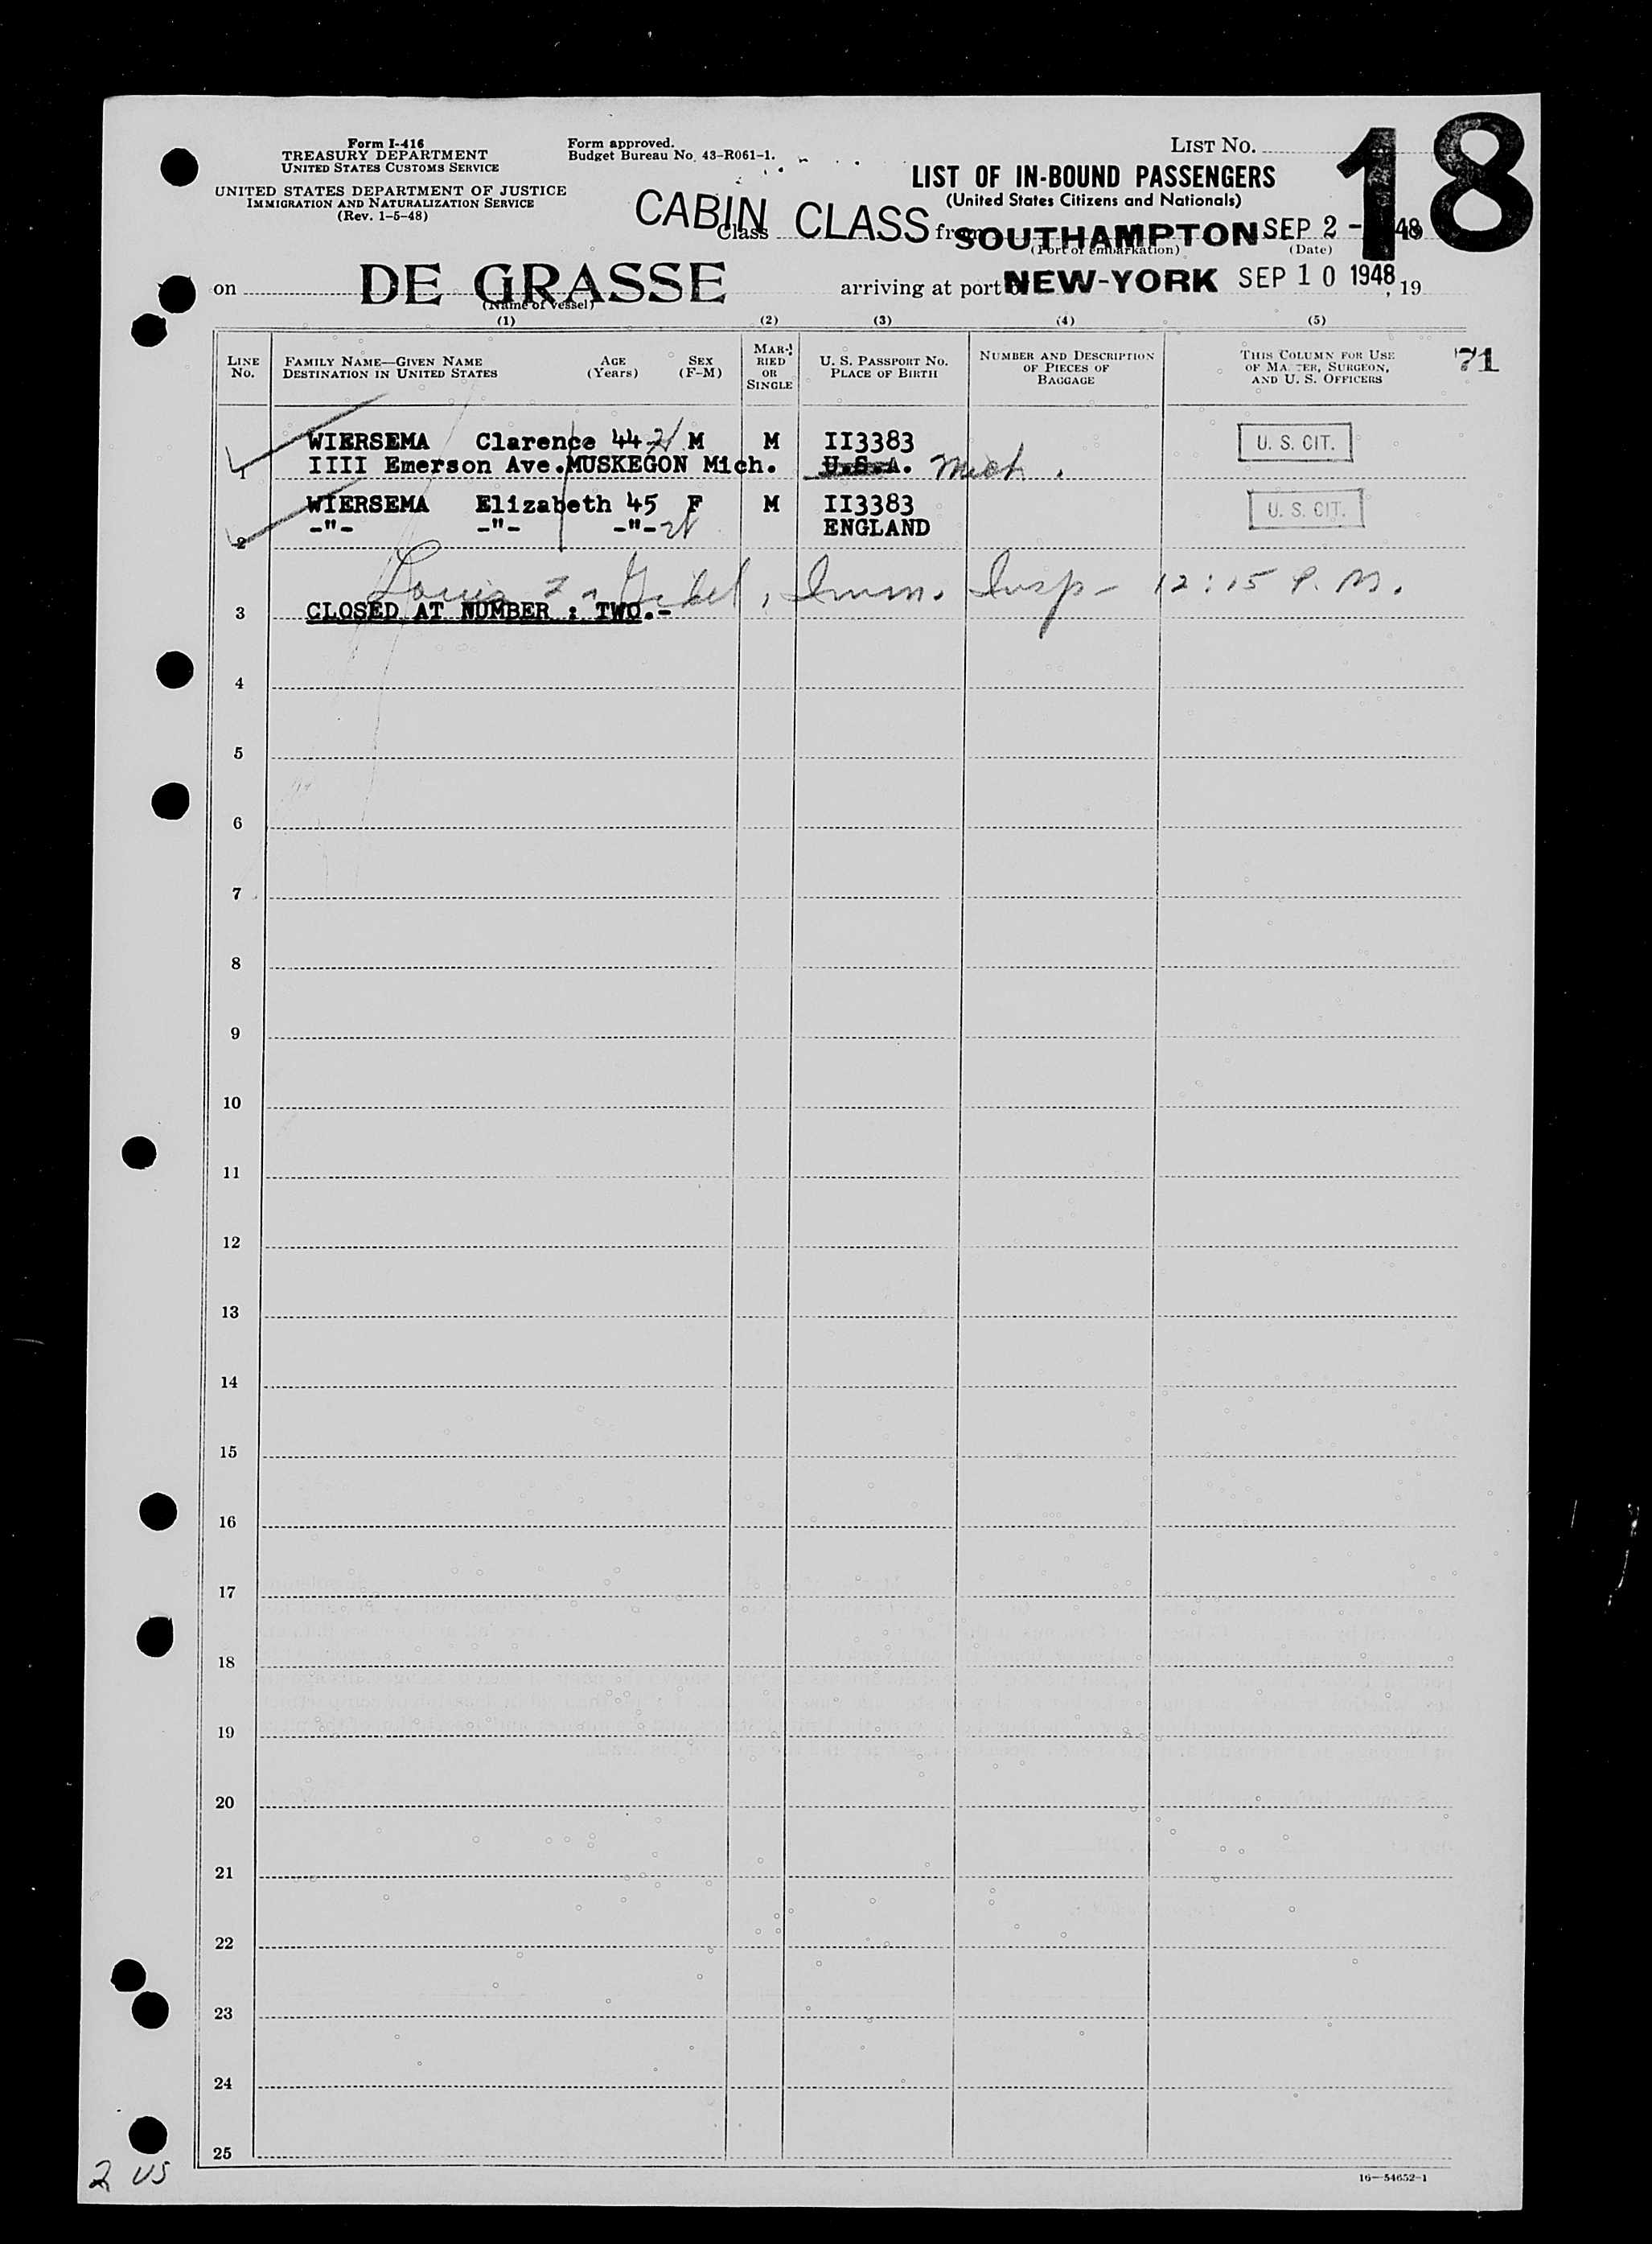 Form I-416
TREASURY DEPARTMENT
UNITED STATES CUSTOMS SERVICE
UNITED STATES DEPARTMENT OF JUSTICE
IMMIGRATION AND NATURALIZATION SERVICE
(Rev. 1-5-48)
Form approved.
Budget Bureau No. 43-R061-1.
LIST NO. 18
LIST OF IN-BOUND PASSENGERS
(United States Citizens and Nationals)
CABIN CLASS
Class from SOUTHAMPTON SEP 2 - 1948
(Port of embarkation) (Date)
on DE GRASSE arriving at port of NEW-YORK SEP 10 1948, 19
(Name of vessel)
(1) (2) (3) (4) (5)
LINE NO. FAMILY NAME—GIVEN NAME DESTINATION IN UNITED STATES AGE (Years) SEX (F-M) MARRIED OR SINGLE U. S. PASSPORT NO. PLACE OF BIRTH NUMBER AND DESCRIPTION OF PIECES OF BAGGAGE THIS COLUMN FOR USE OF MASTER, SURGEON, AND U. S. OFFICERS 71
WIERSEMA Clarence 44 M M II3383 U. S. CIT.
1 IIII Emerson Ave. MUSKEGON Mich. U.S.A. Mich.
WIERSEMA Elizabeth 45 F M II3383 U. S. CIT.
-"- -"- -"- ENGLAND
2
Louis, Imm. Insp- 12:15 P. M.
3 CLOSED AT NUMBER : TWO.-
4
5
6
7
8
9
10
11
12
13
14
15
16
17
18
19
20
21
22
23
24
25
2 US
16—54652-1